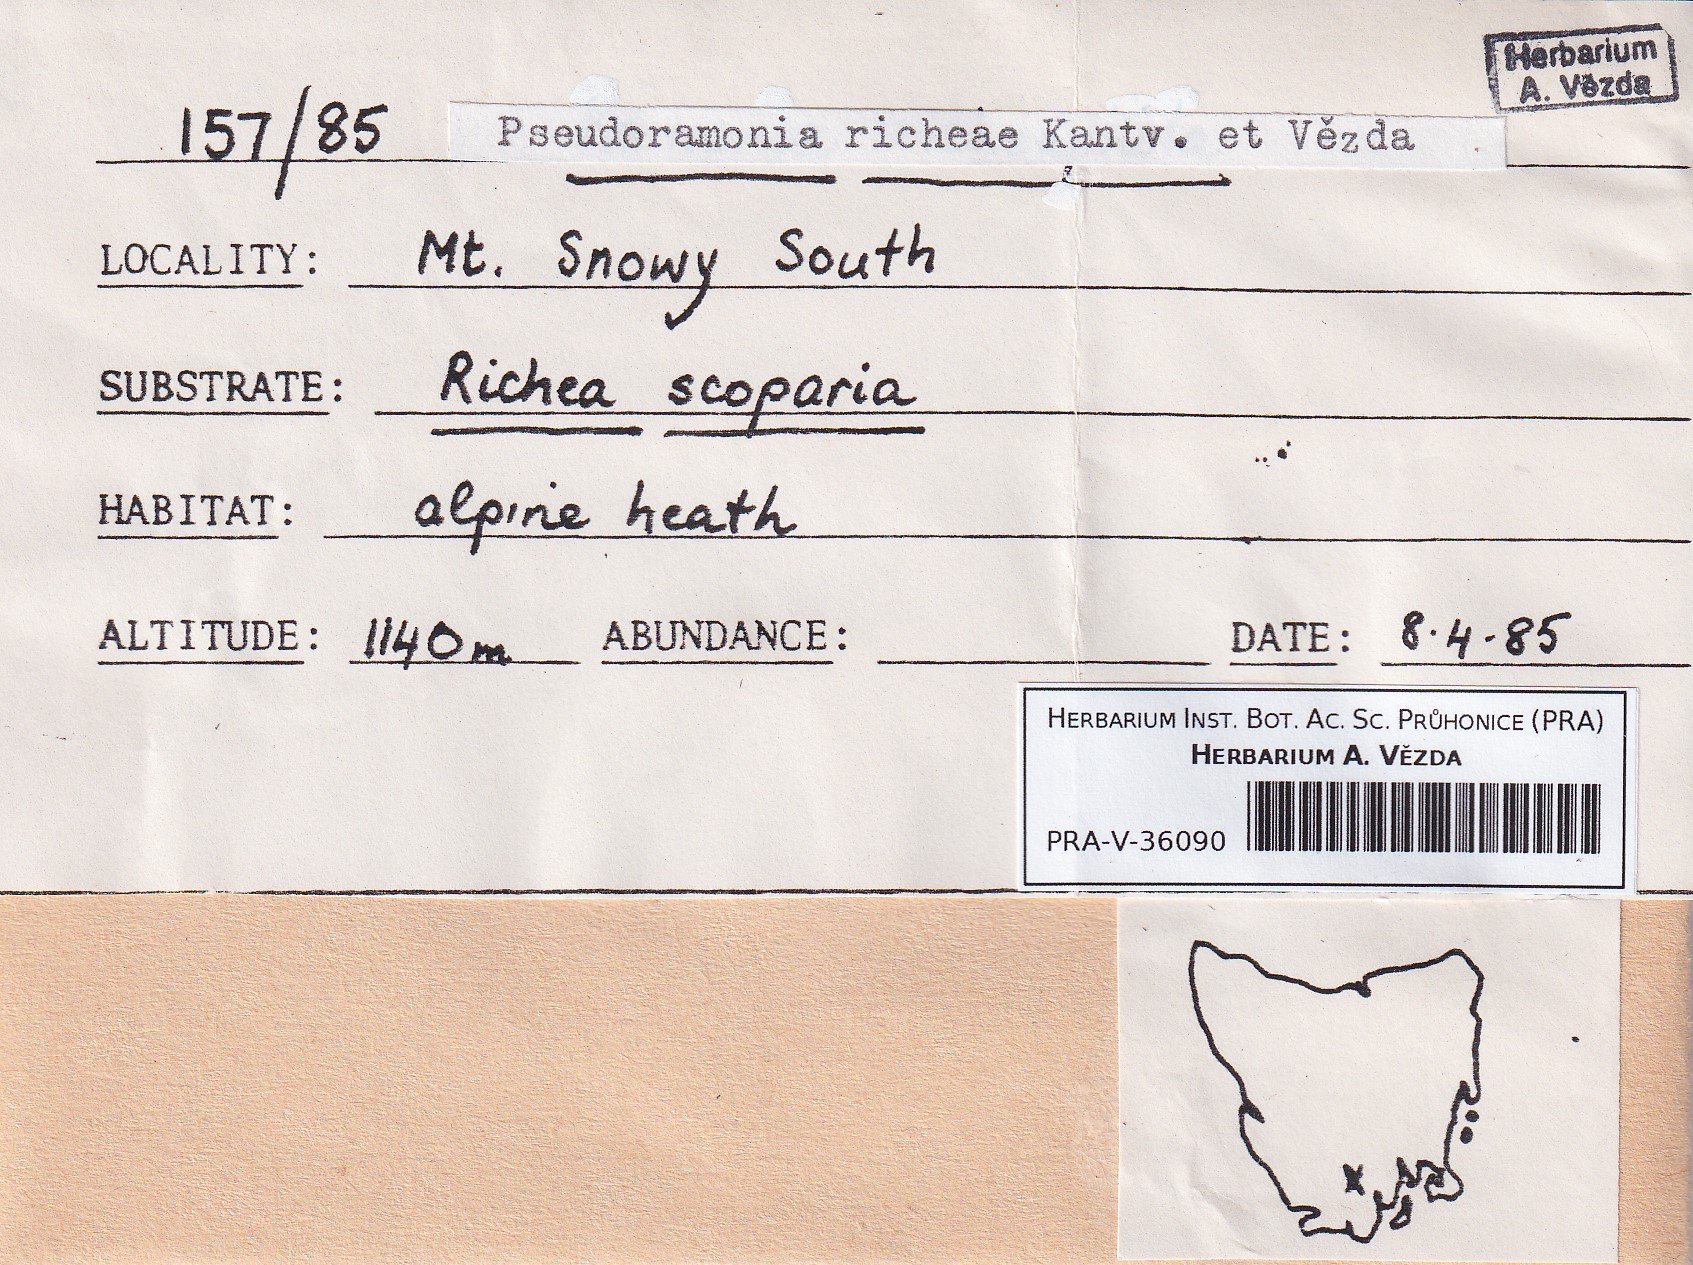 Herbarium
A. Vězda
157/85 Pseudoramonia richeae Kantv. et Vězda
LOCALITY: Mt. Snowy South
SUBSTRATE: Richea scoparia
HABITAT: alpine heath
ALTITUDE: 1140m ABUNDANCE: DATE: 8.4.85
HERBARIUM INST. BOT. AC. SC. PRŮHONICE (PRA)
HERBARIUM A. VĚZDA
PRA-V-36090